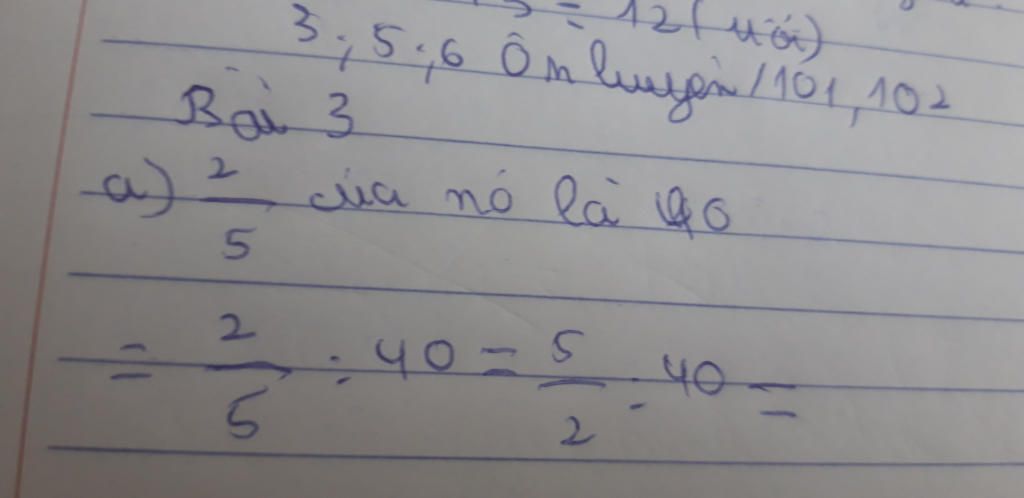 = 12 (tuổi)
3; 5; 6 Ôn luyện / 101, 102
Bài 3
a) 2/5 của nó là 40
= 2/5 : 40 = 5/2 : 40 =